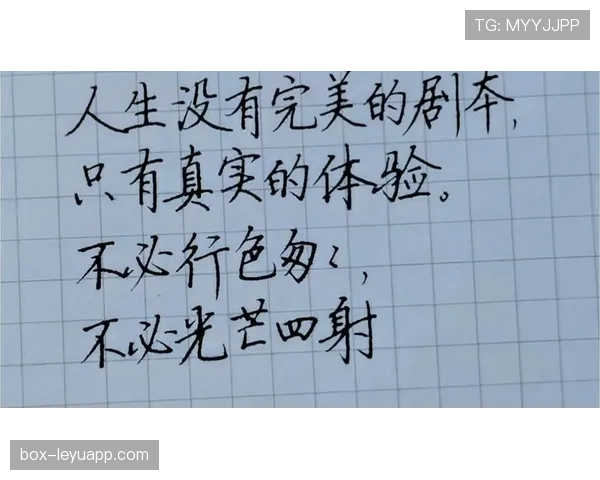 TG: MYYJJPP
人生没有完美的剧本,
只有真实的体验。
不必行色匆々,
不必光芒四射
box-leyuapp.com